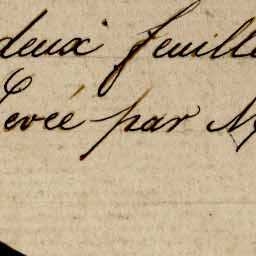 deux feuille
Levée par M